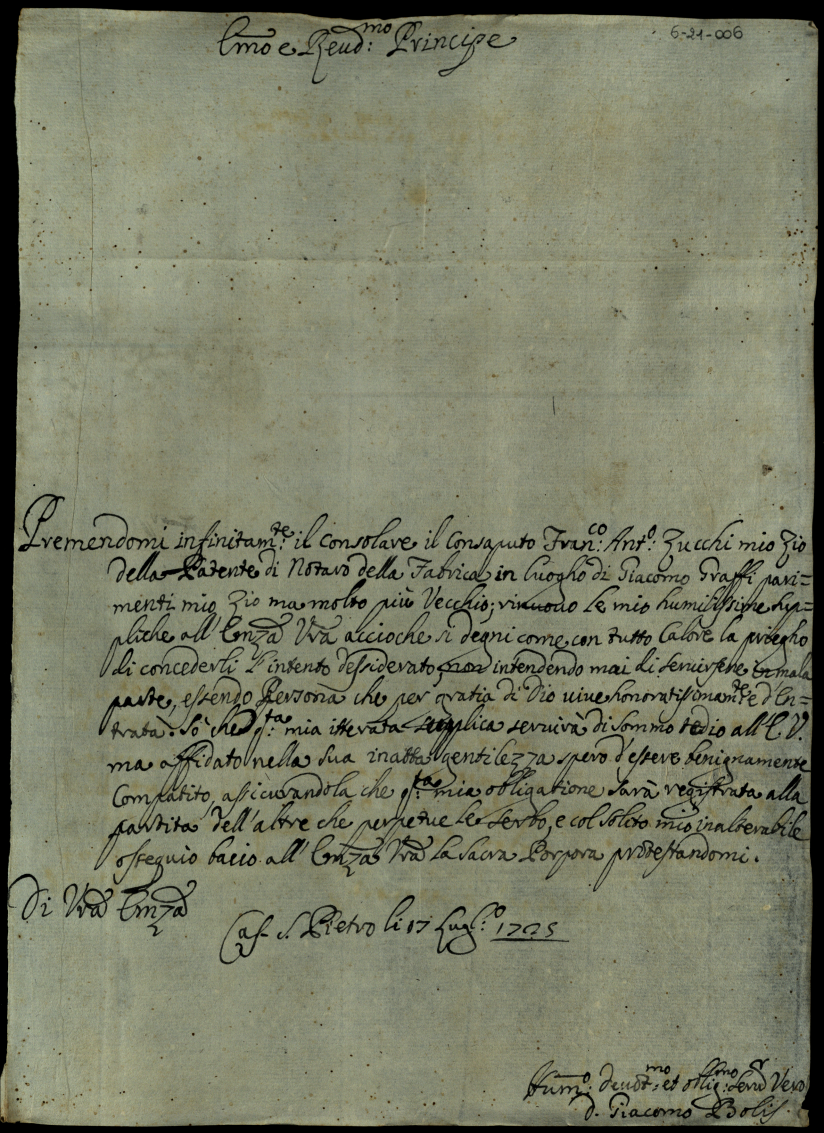 6-21-006
Emo e Reud:mo Principe
Premendomi infinitam:te il consolare il Consaputo Fran:co Ant:o Zucchi mio Zio
della Patente di Notaro della Fabrica in luogho di Giacomo Graffi pari=
menti mio Zio ma molto più Vecchio; rinuovo le mie humilissime sup=
pliche all'Emza Vra accioche si degni come con tutto Calore la priegho
di concederli l'intento dessiderato, non intendendo mai di servirsene in mala
parte, essendo Persona che per gratia di Dio vive honoratissimam:te d'En=
trata. Sò che q:ta mia itterata supplica servirà di sommo tedio all'E. V.
ma affidato nella sua innatta gentilezza spero d'essere benignamente
Compatito, assicurandola che q:ta mia obligatione sarà registrata alla
partita dell'altre che perpetue le serbo, e col solito mio inalterabile
ossequio bacio all'Emza Vra la Sacra Porpora protestandomi.
Di Vra Emza
Cas. S. Pietro li 17 Lug:o 1725
Hum:o deuot:mo et oblig:mo Ser:r Vero
d. Giacomo Bolis